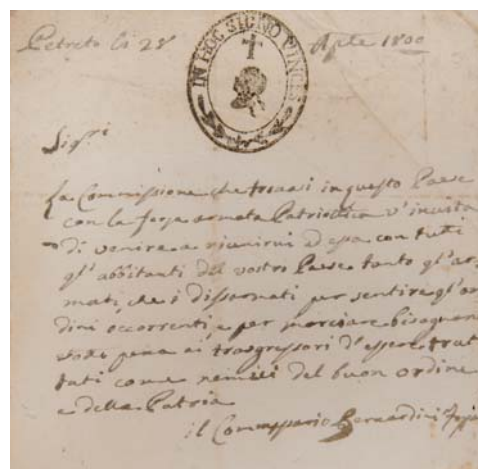 Petreto li 28 Aple 1800
IN HOC SIGNO VINCES
Sigri
La Commissione che trovasi in questo Paese
con la forza armata Patriotica v'invita
di venire a riunirvi ad essa con tutti
gl'abbitanti del vostro Paese tanto gl'ar
mati, che i dissarmati per sentire gl'or
dini occorrenti, e per marciare bisognan
pena ai trasgressori d'essere trat
tati come nemici del buon ordine
e della Patria
il Commissario Bernardini